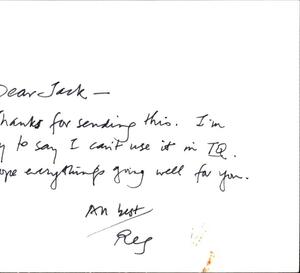 Dear Jack —
Thanks for sending this. I'm
y to say I can't use it in TQ.
ope everything's going well for you.
All best
Reg